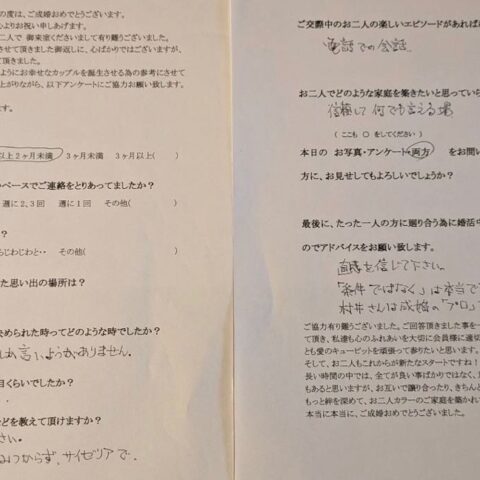 の度は、ご成婚おめでとうございます。
心よりお祝い申しあげます。
二人で 御来室くださいまして有り難うございました。
させて頂きました御返しに、心ばかりではございますが、
て頂きました。
ようにお幸せなカップルを誕生させる為の参考にさせて
上がりながら、以下アンケートにご協力お願い致します。
ます。
以上2ヶ月未満 3ヶ月未満 3ヶ月以上( )
ペースでご連絡をとりあってましたか？
週に2、3回 週に1回 その他(
らじわじわと‥ その他(
た思い出の場所は？
決められた時ってどのような時でしたか？
言いようがありません。
目くらいでしたか？
どを教えて頂けますか？
さい。
みつからず、サイゼリアで.
ご交際中のお二人の楽しいエピソードがあれば
電話での会話
お二人でどのような家庭を築きたいと思ってい
信頼して何でも言える場
( ここも ○ をしてください )
本日の お写真・アンケート 両方 をお問い
方に、お見せしてもよろしいでしょうか？
最後に、たった一人の方に廻り合う為に婚活中
のでアドバイスをお願い致します。
直感を信じて下さい。
「条件ではなく」は本当で
村井さんは成婚の「プロ」
ご協力有り難うございました。ご回答頂きました事を一
て頂き、私達も心のふれあいを大切に会員様に適切
とも愛のキューピットを頑張って参りたいと思います。
そして、お二人もこれからが新たなスタートですね！
長い時間の中では、全てが良い事ばかりではなく、
もあると思いますが、お互いで譲り合ったり、きちんと
もっと絆を深めて、お二人カラーのご家庭を築かれ
本当に本当に、ご成婚おめでとうございました。